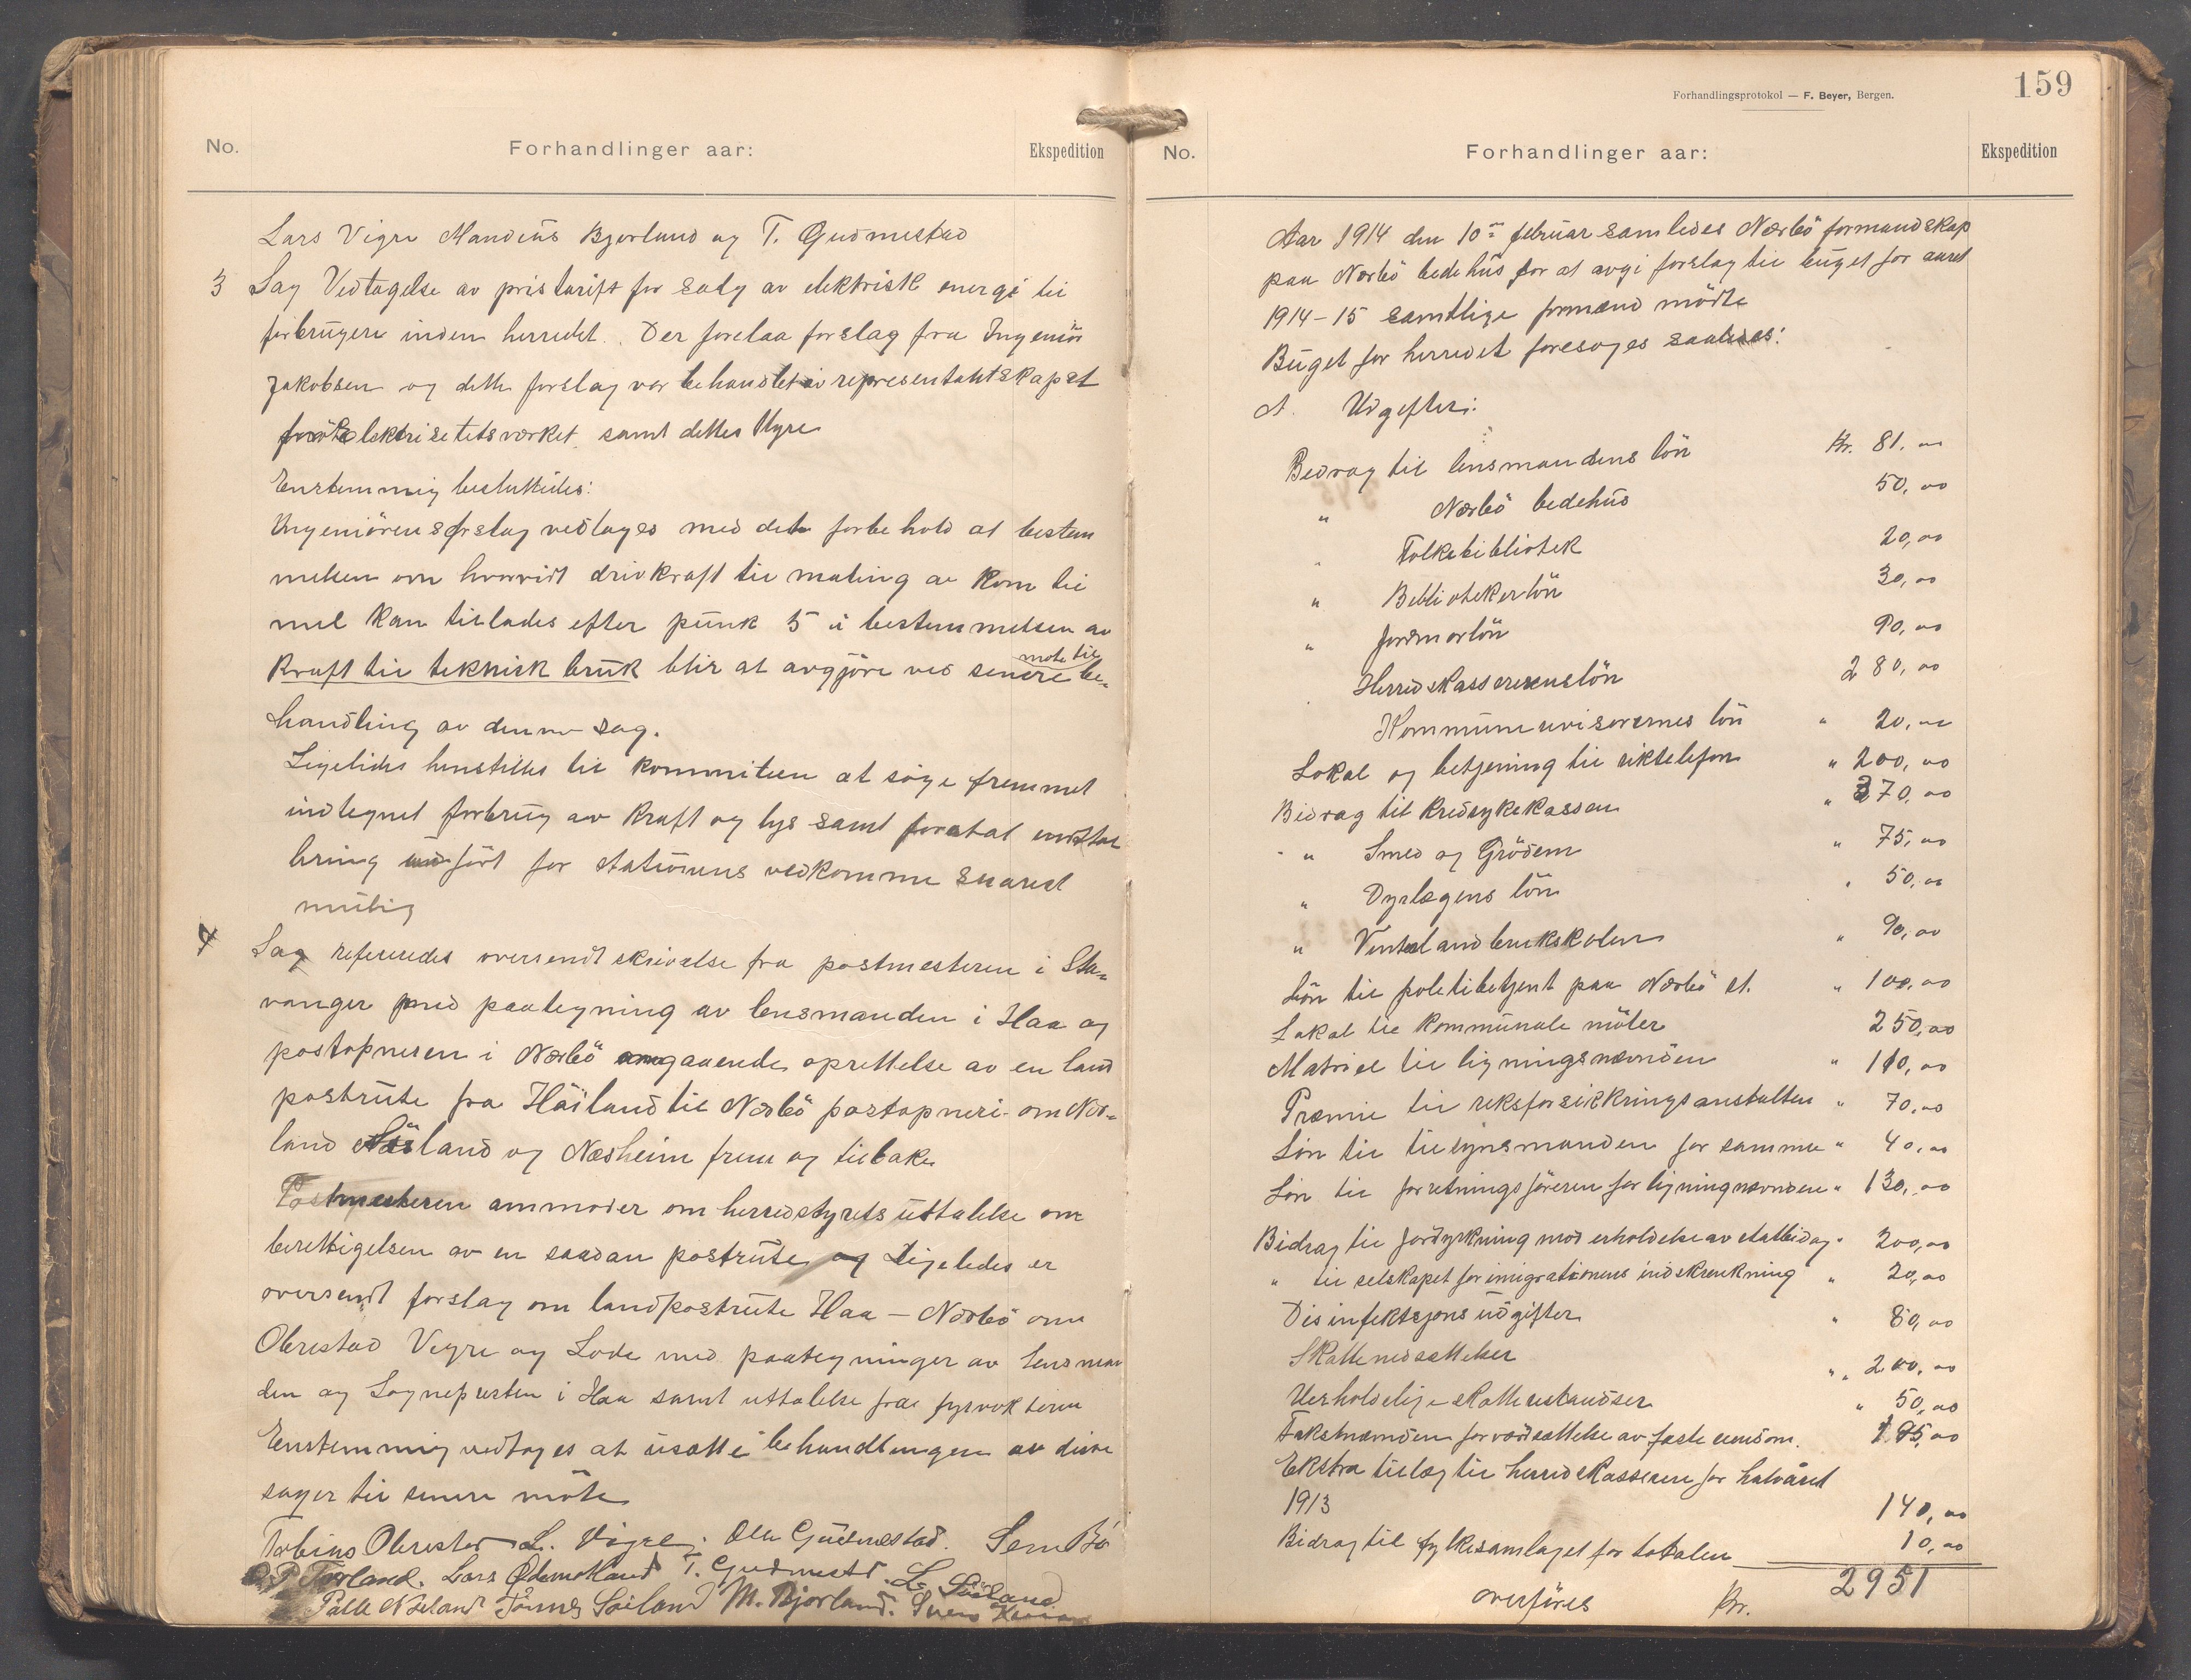 No.
Forhandlinger aar:
Ekspedition
Lars Vigre Mandius Bjorland og T. Gudmestad
3 Sag Vedtagelse av pristarift for salg av elektrisk energi til
forbrugere inden herredet. Der forelaa forslag fra Ingeniör
Jakobsen og dette forslag var behandlet av representantskapet
for elektrisetetsværket samt dettes styre
Enstemmig besluttedes:
Ingeniörens forslag vedtages med det forbehold at bestem
melsen om hvorvidt drivkraft til maling av korn til
mel kan tillades efter punk 5 i bestemmelsen av
kraft til teknisk bruk blir at avgjöre ved senere möte til be-
handling av denne sag.
Ligeledes henstilles til kommiteen at söge fremmet
indtegnet forbrug av kraft og lys samt foretat
bring utfört for stationens vedkomme snarest
mulig
4 Sag refereredes oversendt skrivelse fra postmesteren i Sta-
vanger med paategning av lensmanden i Haa og
postopneren i Nærbö angaaende oprettelse av en land
postrute fra Häiland til Nærbö postopneri om Nor-
land og Næsheim frem og tilbake
Postmesteren anmoder om herredstyrets uttalelse om
berettigelsen av en saadan postrute og Ligeledes er
oversendt forslag om landpostrute Haa – Nærbö om
Obrestad Vegre og Lode med paategninger av lensman
den og Sogneprsten i Haa samt uttalelse fra fyrvokteren
Enstemmig vedtoges at utsætte behandlingen av disse
sager til senere möte
Tobias Obrestad L. Vigre. Ole Gudmestad. Sem Bö
O. P. Torland. Lars Ødemotland T. Gudmestd. L. Söiland
Palle Nœland Tönnes Soiland M. Bjorland. Svens
159
Forhandlingsprotokol — F. Beyer, Bergen.
No.
Forhandlinger aar:
Ekspedition
Aar 1914 den 10de februar samledes Nærbö formandskap
paa Nærbö bedehus for at avgi forslag til buget for aaret
1914–15 samtlige formænd mödte
Buget for herredet foresoges saaledes:
A. Udgefter:
Bedrag til lensmandens lön Kr. 81,00
" Nærbö bedehus 50,00
" Folkebibliotek 20,00
" Bebliotekerlön 30,00
" Jordmorlön 90,00
Herredskassererens lön 280,00
Kommunerevisorernes lön " 20,00
Lokal og betjening til rikstelefon " 200,00
Bidrag til kredsykekassen " 370,00
" Smed og Grödem " 75,00
" Dyrlægens lön " 50,00
" Vinterlandbrukskolen " 90,00
Lön til poletibetjent paa Nærbö st. " 100,00
Lokal til kommunale möter 250,00
Matriel til ligningsnævnden " 110,00
Præmie til riksforsikkringsanstalten " 70,00
Lön til tilsynsmanden for samme " 40,00
Lön til forretningsföreren for ligningnævnden " 130,00
Bidrag til jordyrkning mod erholdelse av statbidag " 200,00
" til selskapet for imigrationens indskrenkning " 20,00
Disinfektsjons udgifter " 80,00
Skattenedsættelser " 200,00
Uerholdelige skatterestandser " 50,00
Takstnæmden for værdsættelse av faste eiendom. 195,00
Ekstra tillæg til herredskasseren for halvåret
1913 140,00
Bidrag til fylkesamlaget for totalen 10,00
overföres Kr. 2951